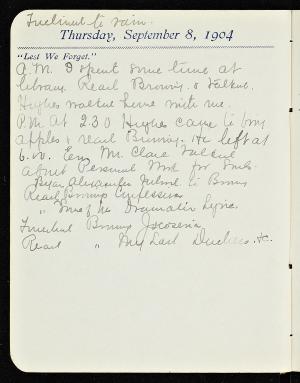 Inclined to rain.
Thursday, September 8, 1904
"Lest We Forget."
A.M. I spent some time at
library. Read Browning & talked.
Hughes walked home with me.
P.M. At 2.30 Hughes came to
apples & read Browning. He left at
6.00. Eve. Mr. Clare talked
about Personal Work for
Began Alexander's Introd. to Browning
Read Browning's Confessions
" Some of his Dramatic Lyrics.
Finished Browning's Jocoseria.
Read " My Last Duchess. &c.